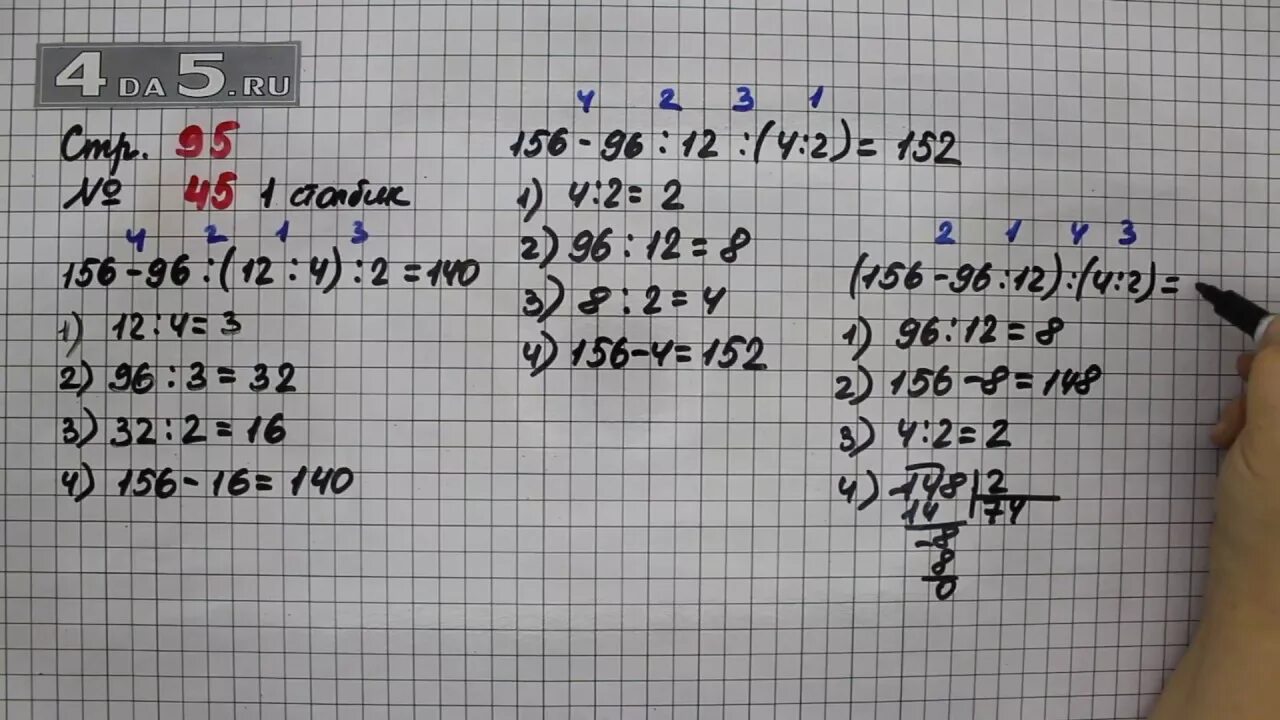 4 DA 5.RU
Стр. 95
№ 45 1 столбик
4 2 1 3
156 - 96 : (12 : 4) : 2 = 140
1) 12 : 4 = 3
2) 96 : 3 = 32
3) 32 : 2 = 16
4) 156 - 16 = 140
4 2 3 1
156 - 96 : 12 : (4:2) = 152
1) 4:2 = 2
2) 96 : 12 = 8
3) 8 : 2 = 4
4) 156 - 4 = 152
2 1 4 3
(156 - 96 : 12) : (4:2) =
1) 96 : 12 = 8
2) 156 - 8 = 148
3) 4:2 = 2
4) -148 | 2
14 | 74
-8
8
0